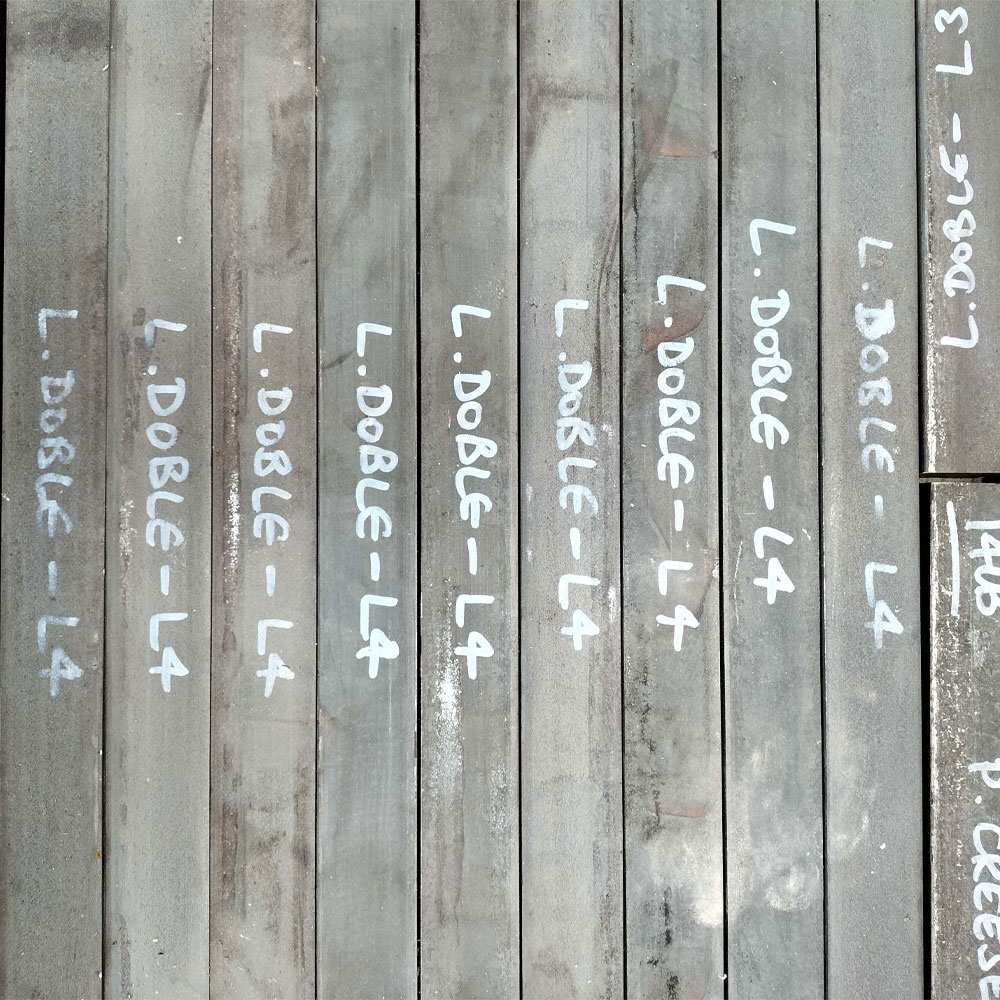 L.DOBLE-L4
L.DOBLE-L4
L.DOBLE-L4
L.DOBLE-L4
L.DOBLE-L4
L.DOBLE-L4
L.DOBLE-L4
L.DOBLE-L4
L.DOBLE-L4
L.DOBLE-L3
P.CREESE